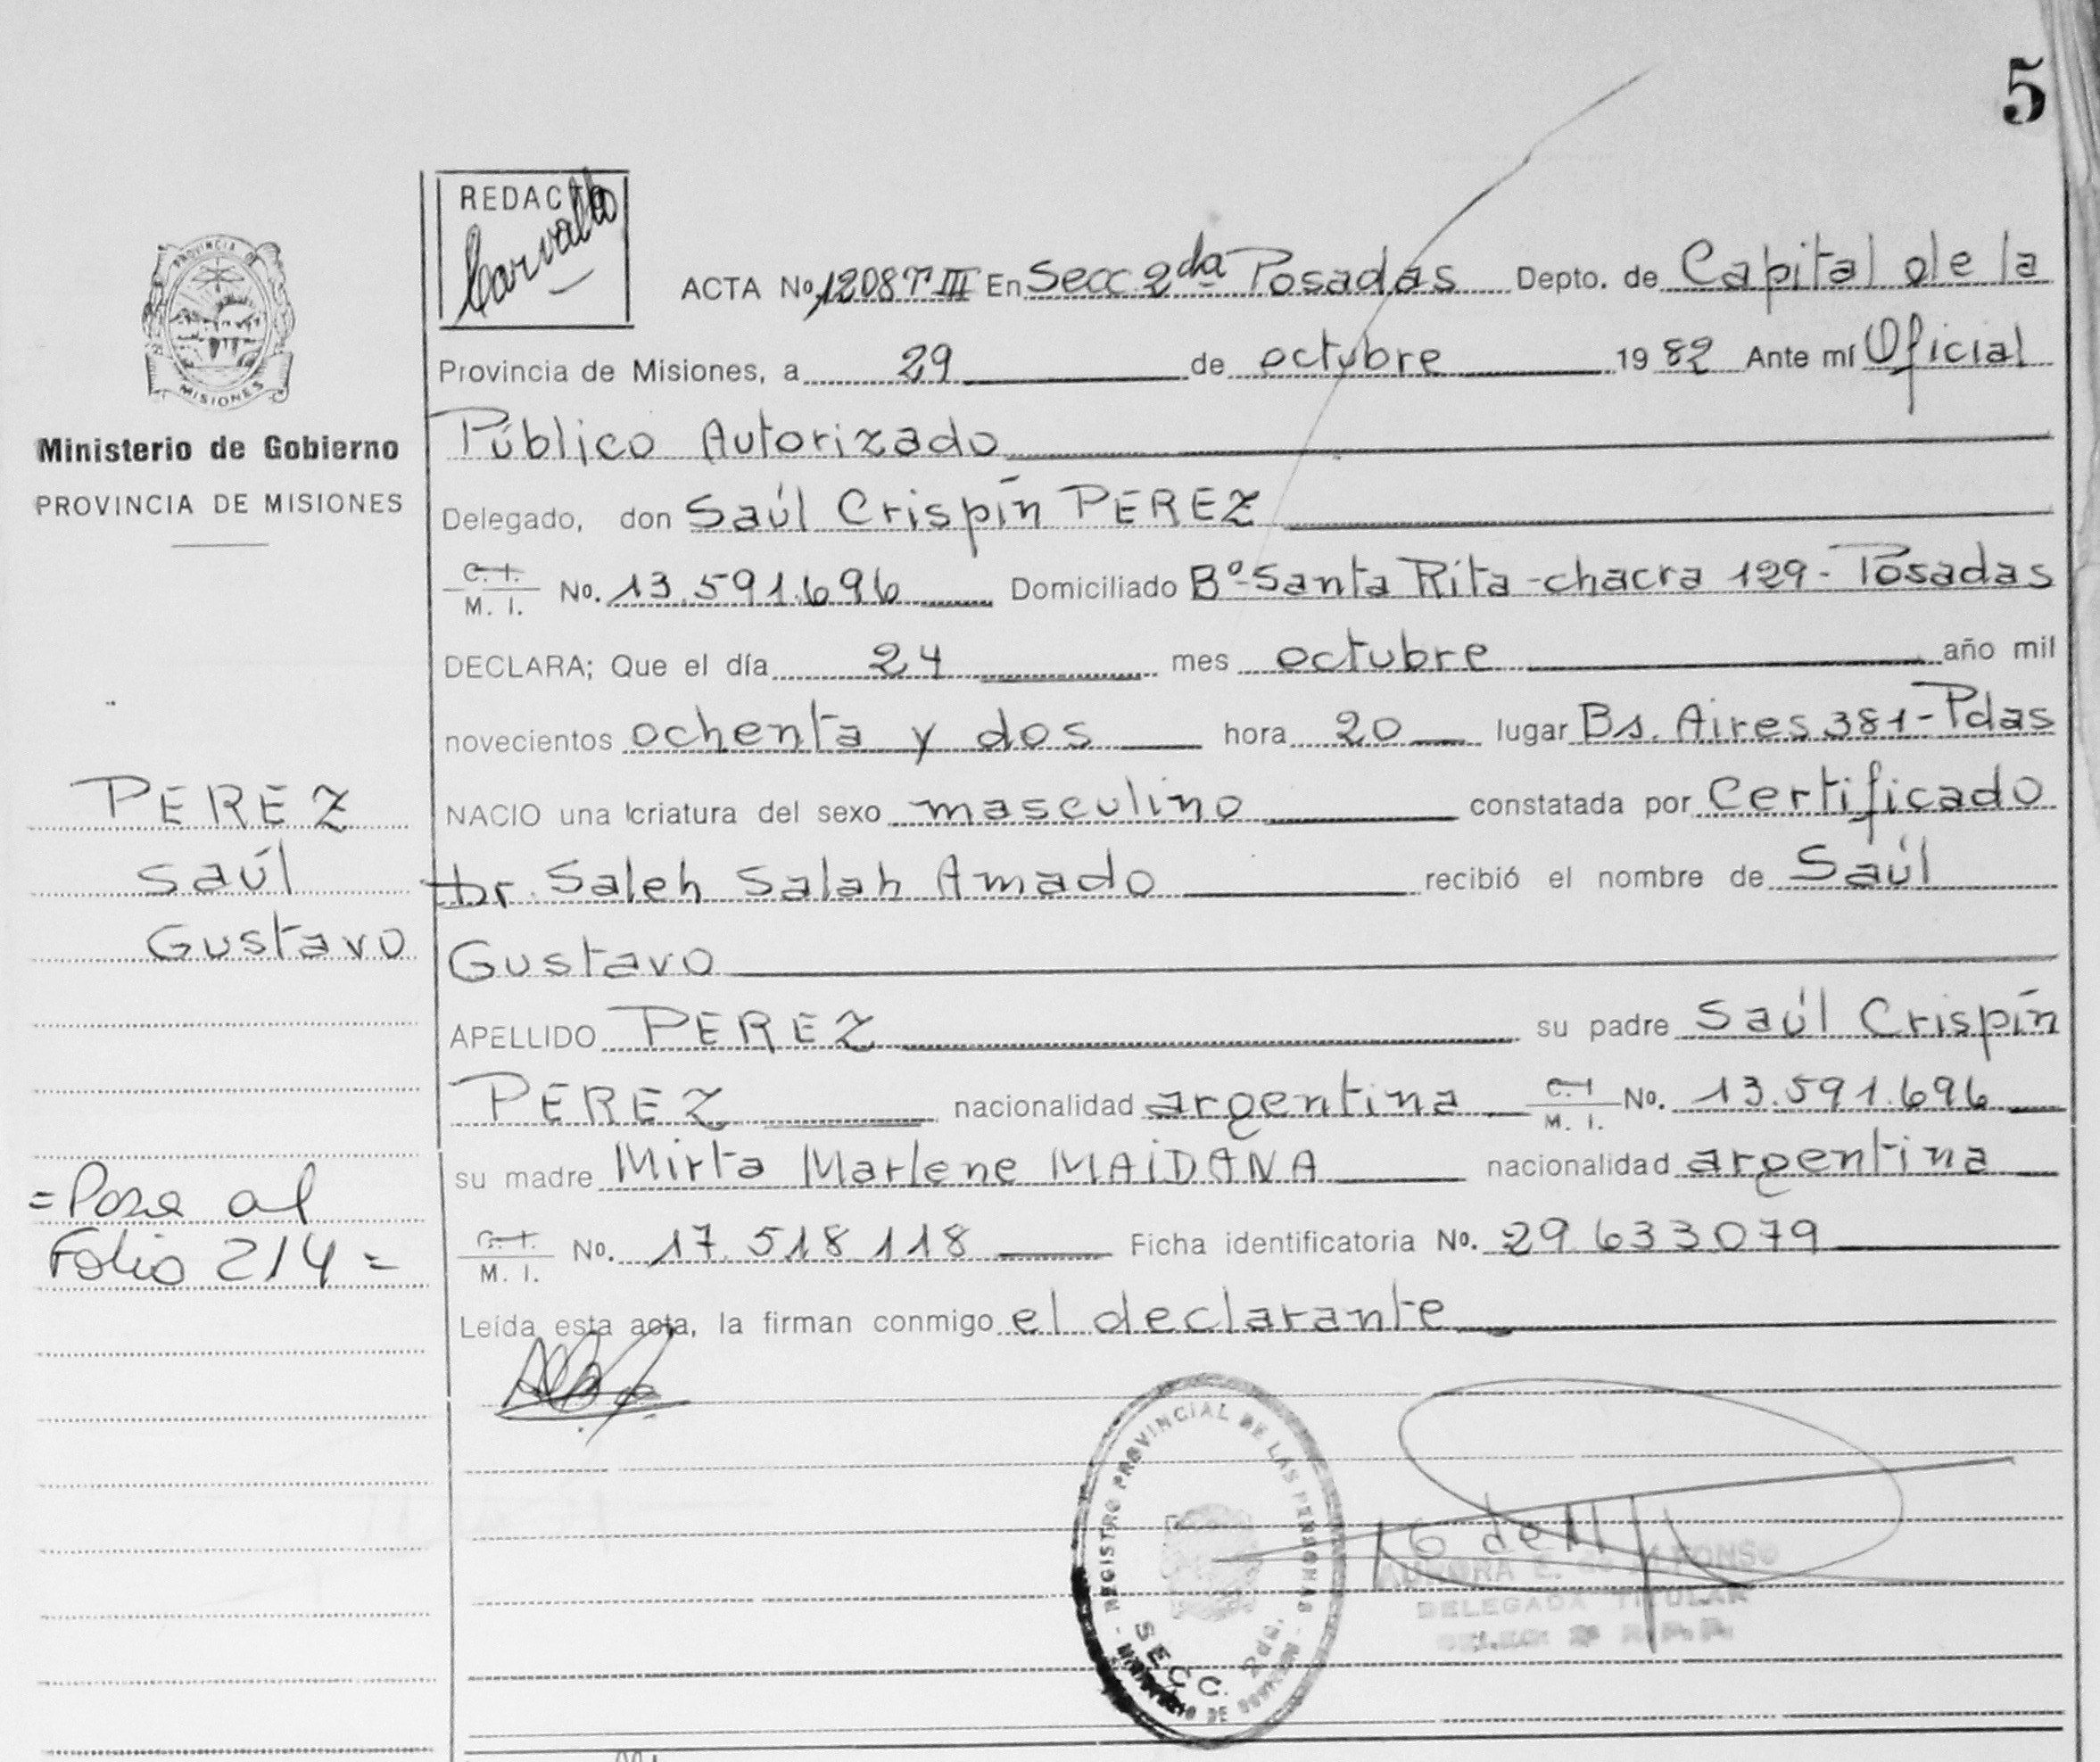 5
REDACTO
Carvallo
ACTA No. 1208 Tº III En Secc. 2da Posadas Depto. de Capital de la
Provincia de Misiones, a 29 de octubre 19 82 Ante mí Oficial
Público Autorizado
Delegado, don Saúl Crispín PEREZ
C. I. M. I. No. 13.591.696 Domiciliado Bº-Santa Rita-chacra 129-Posadas
DECLARA; Que el día 24 mes octubre año mil
novecientos ochenta y dos hora 20 lugar Bs. Aires 381-Pdas
NACIO una criatura del sexo masculino constatada por Certificado
Dr. Saleh Salah Amado recibió el nombre de Saúl
Gustavo
APELLIDO PEREZ su padre Saúl Crispín
PEREZ nacionalidad argentina C. I. M. I. No. 13.591.696
su madre Mirta Marlene MAIDANA nacionalidad argentina
C. I. M. I. No. 17.518.118 Ficha identificatoria No. 29.633.079
Leída esta acta, la firman conmigo el declarante
PROVINCIA D
MISIONES
Ministerio de Gobierno
PROVINCIA DE MISIONES
PEREZ
Saúl
Gustavo
=Pasa al
Folio 214=
REGISTRO PROVINCIAL DE LAS PERSONAS
SECC. 2da.
AURORA E. de ALFONSO
DELEGADA TITULAR